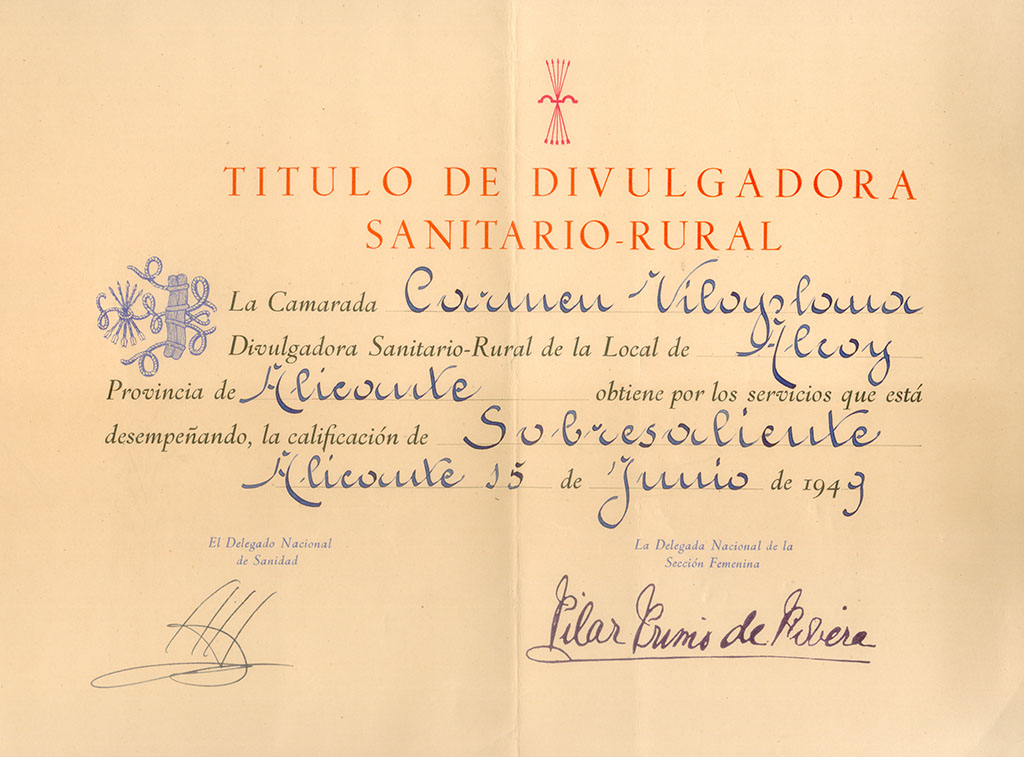 TITULO DE DIVULGADORA
SANITARIO-RURAL
La Camarada Carmen Vilaplana
Divulgadora Sanitario-Rural de la Local de Alcoy
Provincia de Alicante obtiene por los servicios que está
desempeñando, la calificación de Sobresaliente
Alicante 15 de Junio de 1949
El Delegado Nacional
de Sanidad
La Delegada Nacional de la
Sección Femenina
Pilar Primo de Ribera